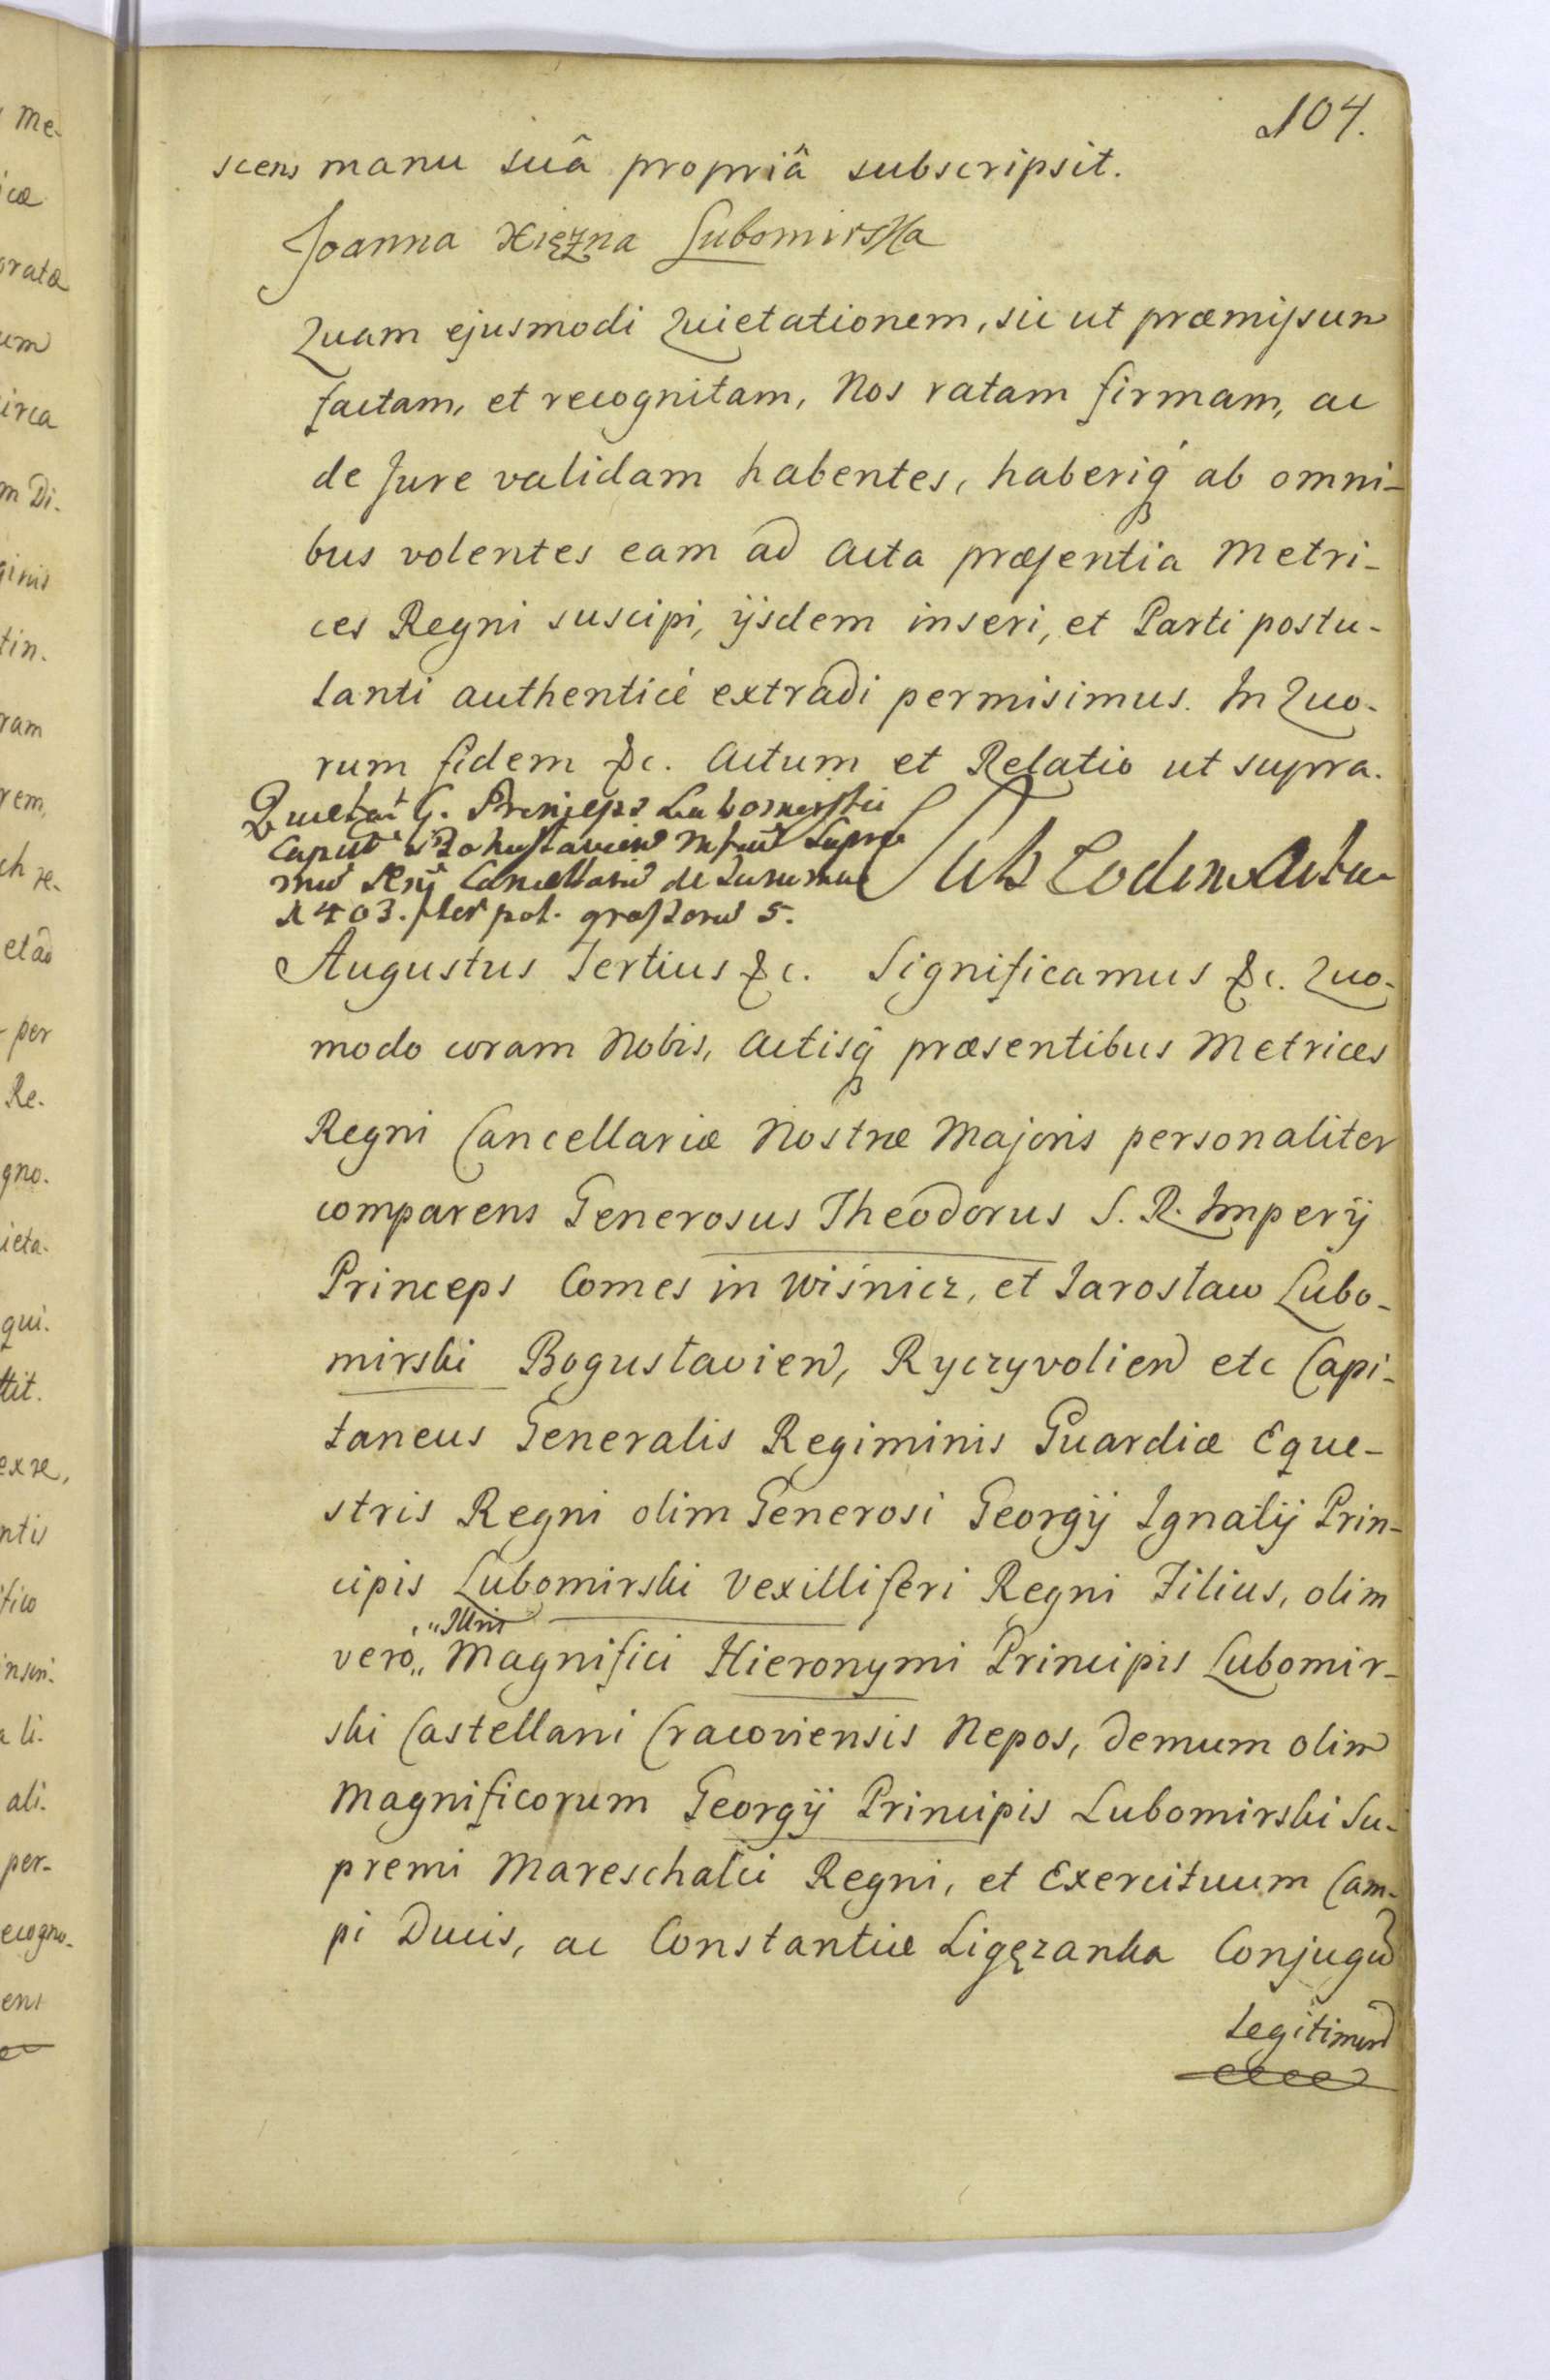 104.
scens manu suâ propriâ subscripsit.
Joanna Xiężna Lubomirska
Quam ejusmodi Quietationem, sic ut præmissum
factam, et recognitam, Nos ratam firmam, ac
de Jure validam habentes, haberiq́ ab omni-
bus volentes eam ad Acta præsentia Metri-
ces Regni suscipi, ijsdem inseri, et Parti postu-
lanti authenticè extradi permisimus. In Quo-
rum fidem &c. Actum et Relatio ut supra.
Quietat G. Princeps Lubomirski
Sub Eodem Actu
de summa
403. pol. 5.
Augustus Tertius &c. Significamus &c. Quo-
modo coram Nobis, Actisq́ præsentibus Metrices
Regni Cancellariæ Nostræ Majoris personaliter
comparens Generosus Theodorus S. R. Imperij
Princeps Comes in Wiśnicz, et Jarosław Lubo-
mirski Bogusłavien, Ryczyvolien etc Capi-
taneus Generalis Regiminis Guardiæ Eque-
stris Regni olim Generosi Georgij Ignatij Prin-
cipis Lubomirski Vexilliferi Regni Filius, olim
Illris
vero „ Magnifici Hieronymi Principis Lubomir-
ski Castellani Cracoviensis Nepos, demum olim
Magnificorum Georgij Principis Lubomirski Su-
premi Mareschalci Regni, et Exercituum Cam-
pi Ducis, ac Constantiæ Ligęzanka Conjugũ
Legitimorũ
me-
icæ
oratæ
um
irca
m Di-
ginis
tin-
ram
rem,
ch re-
et ad
per
Re-
gno-
ieta-
qui-
ttit.
exre,
ntis
fico
inseri-
a li-
ali-
per-
ecogno-
ens